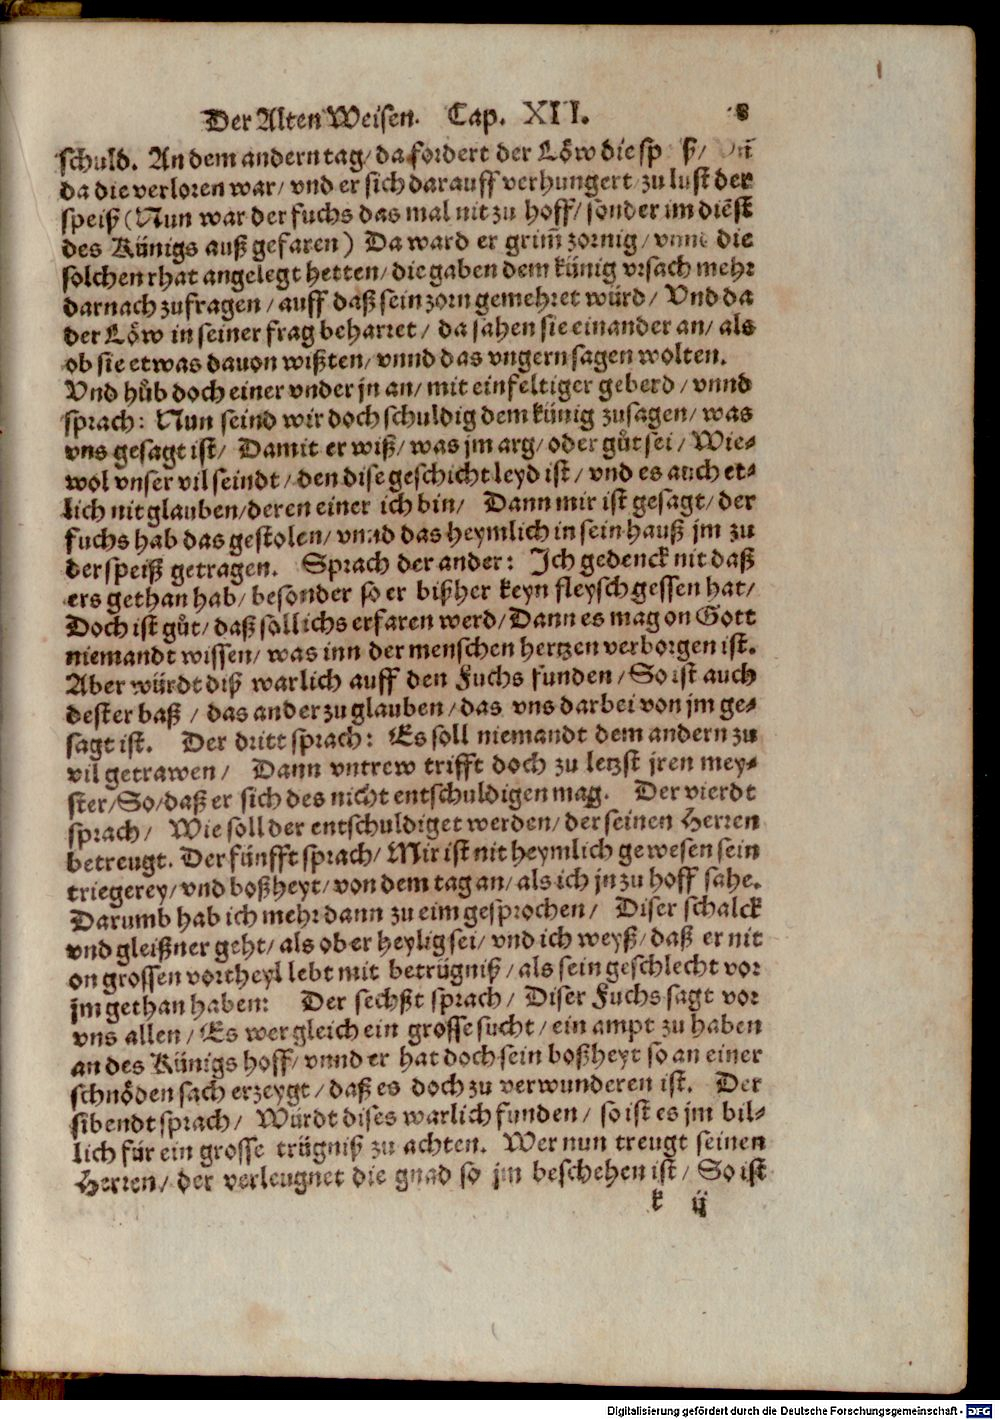 Der Alten Weisen. Cap. XII. 8
schuld. An dem andern tag/ da fordert der Löw die sp ß/ Vn̄
da die verloren war/ vnd er sich darauff verhungert zu lust der
speiß (Nun war der fuchs das mal nit zu hoff/ sonder im diēst
des Künigs auß gefaren) Da ward er grim̄ zornig/ vnnd die
solchen rhat angelegt hetten/ die gaben dem künig vrsach mehr
darnach zufragen/ auff daß sein zorn gemehret würd/ Vnd da
der Löw in seiner frag beharret/ da sahen sie einander an/ als
ob sie etwas dauon wißten/ vnnd das vngern sagen wolten.
Vnd hůb doch einer vnder jn an/ mit einfeltiger geberd/ vnnd
sprach: Nun seind wir doch schuldig dem künig zusagen/ was
vns gesagt ist/ Damit er wiß/ was jm arg/ oder gůt sei/ Wie-
wol vnser vil seindt/ den dise geschicht leyd ist/ vnd es auch et-
lich nit glauben/ deren einer ich bin/ Dann mir ist gesagt/ der
fuchs hab das gestolen/ vnnd das heymlich in sein hauß jm zu
der speiß getragen. Sprach der ander: Ich gedenck nit daß
ers gethan hab/ besonder so er bißher keyn fleysch gessen hat/
Doch ist gůt/ daß sollichs erfaren werd/ Dann es mag on Gott
niemandt wissen/ was inn der menschen hertzen verborgen ist.
Aber würdt diß warlich auff den Fuchs funden/ So ist auch
dester baß/ das ander zu glauben/ das vns darbei von jm ge-
sagt ist. Der dritt sprach: Es soll niemandt dem andern zu
vil getrawen/ Dann vntrew trifft doch zu letzst jren mey-
ster/ So/ daß er sich des nicht entschuldigen mag. Der vierdt
sprach/ Wie soll der entschuldiget werden/ der seinen Herren
betreugt. Der fünfft sprach/ Mir ist nit heymlich gewesen sein
triegerey/ vnd boßheyt/ von dem tag an/ als ich jn zu hoff sahe.
Darumb hab ich mehr dann zu eim gesprochen/ Diser schalck
vnd gleißner geht/ als ob er heylig sei/ vnd ich weyß/ daß er nit
on grossen vortheyl lebt mit betrügniß/ als sein geschlecht vor
jm gethan haben: Der sechßt sprach/ Diser Fuchs sagt vor
vns allen/ Es wer gleich ein grosse sucht/ ein ampt zu haben
an des Künigs hoff/ vnnd er hat doch sein boßheyt so an einer
schnöden sach erzeygt/ daß es doch zu verwunderen ist. Der
sibendt sprach/ Würdt dises warlich funden/ so ist es jm bil-
lich für ein grosse trügniß zu achten. Wer nun treugt seinen
Herren/ der verleugnet die gnad so jm beschehen ist/ So ist
k ij
Digitalisierung gefördert durch die Deutsche Forschungsgemeinschaft - DFG